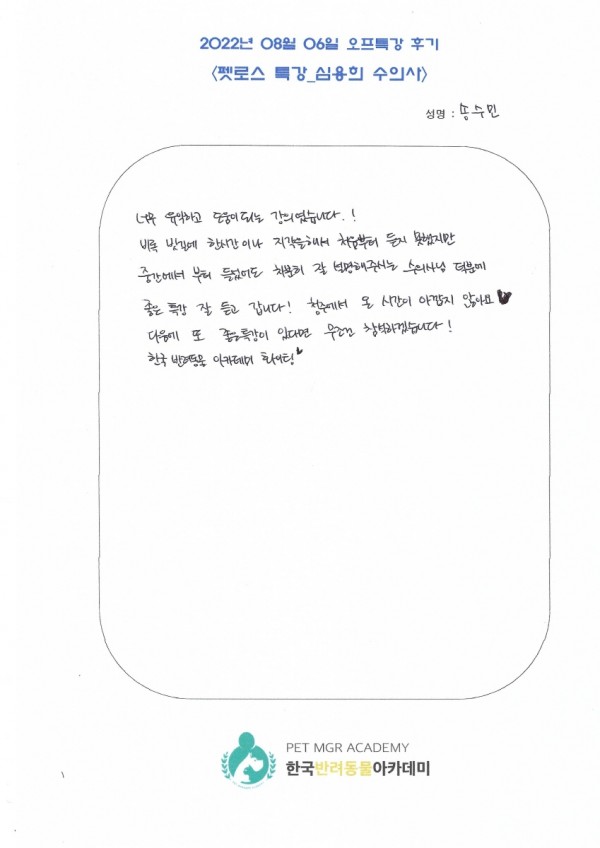 2022년 08월 06일 오프특강 후기
<펫로스 특강_심용희 수의사>
성명 : 송수민
너무 유익하고 도움이 되는 강의였습니다.!
비록 빗길에 한시간이나 지각을해서 처음부터 듣지 못했지만
중간에서 부터 들었어도 차분히 잘 설명해주시는 수의사님 덕분에
좋은 특강 잘 듣고 갑니다! 청주에서 온 시간이 아깝지 않아요♥
다음에 또 좋은특강이 있다면 무조건 참석하겠습니다!
한국 반려동물 아카데미 화이팅♥
PET MGR ACADEMY
한국반려동물아카데미